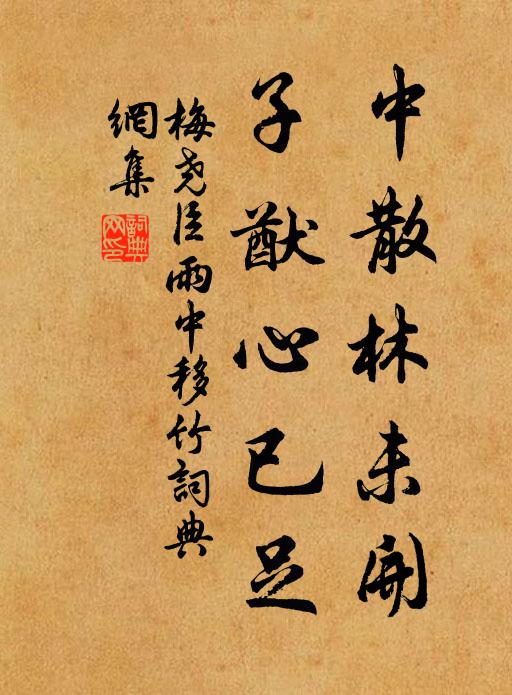 中散林未開
子猷心已足
梅堯臣雨中移竹詞典
網集
詞典網印